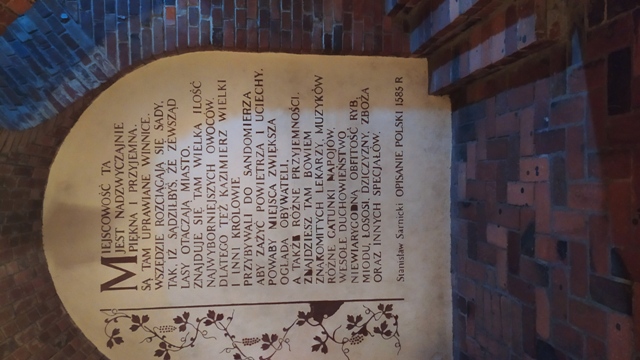 MIEJSCOWOŚĆ TA
JEST NADZWYCZAJNIE
PIĘKNA I PRZYJEMNA.
SĄ TAM UPRAWIANE WINNICE,
WSZĘDZIE ROZCIĄGAJĄ SIĘ SADY,
TAK, IŻ SĄDZIŁBYŚ, ŻE ZEWSZĄD
LASY OTACZAJĄ MIASTO.
ZNAJDUJE SIĘ TAM WIELKA ILOŚĆ
NAJWYBORNIEJSZYCH OWOCÓW,
DLATEGO TEŻ KAZIMIERZ WIELKI
I INNI KRÓLOWIE
PRZYBYWALI DO SANDOMIERZA
ABY ZAŻYĆ POWIETRZA I UCIECHY.
POWABY MIEJSCA ZWIĘKSZA
OGŁADA OBYWATELI
A TAKŻE RÓŻNE PRZYJEMNOŚCI.
ZNAJDZIESZ TAM BOWIEM
ZNAKOMITYCH LEKARZY, MUZYKÓW
RÓŻNE GATUNKI NAPOJÓW,
WESOŁE DUCHOWIEŃSTWO
NIEWIARYGODNĄ OBFITOŚĆ RYB,
MIODU, ŁOSOSI, DZICZYZNY, ZBOŻA
ORAZ INNYCH SPECJAŁÓW.
Stanisław Sarnicki OPISANIE POLSKI 1585 R